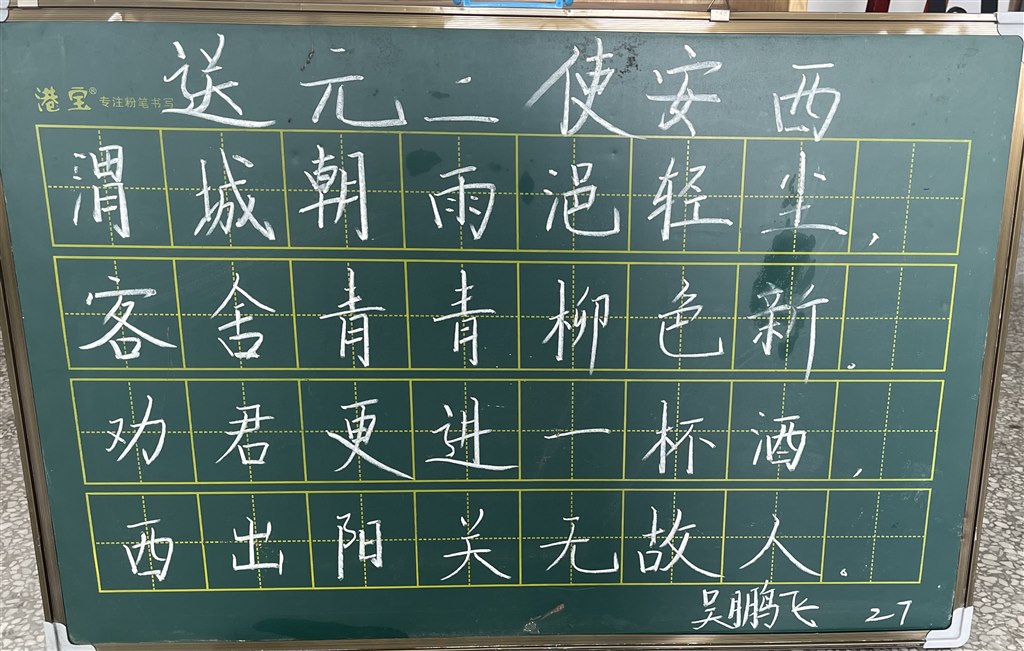 送元二使安西
港宝® 专注粉笔书写
渭城朝雨浥轻尘，
客舍青青柳色新。
劝君更进一杯酒，
西出阳关无故人。
吴鹏飞 27